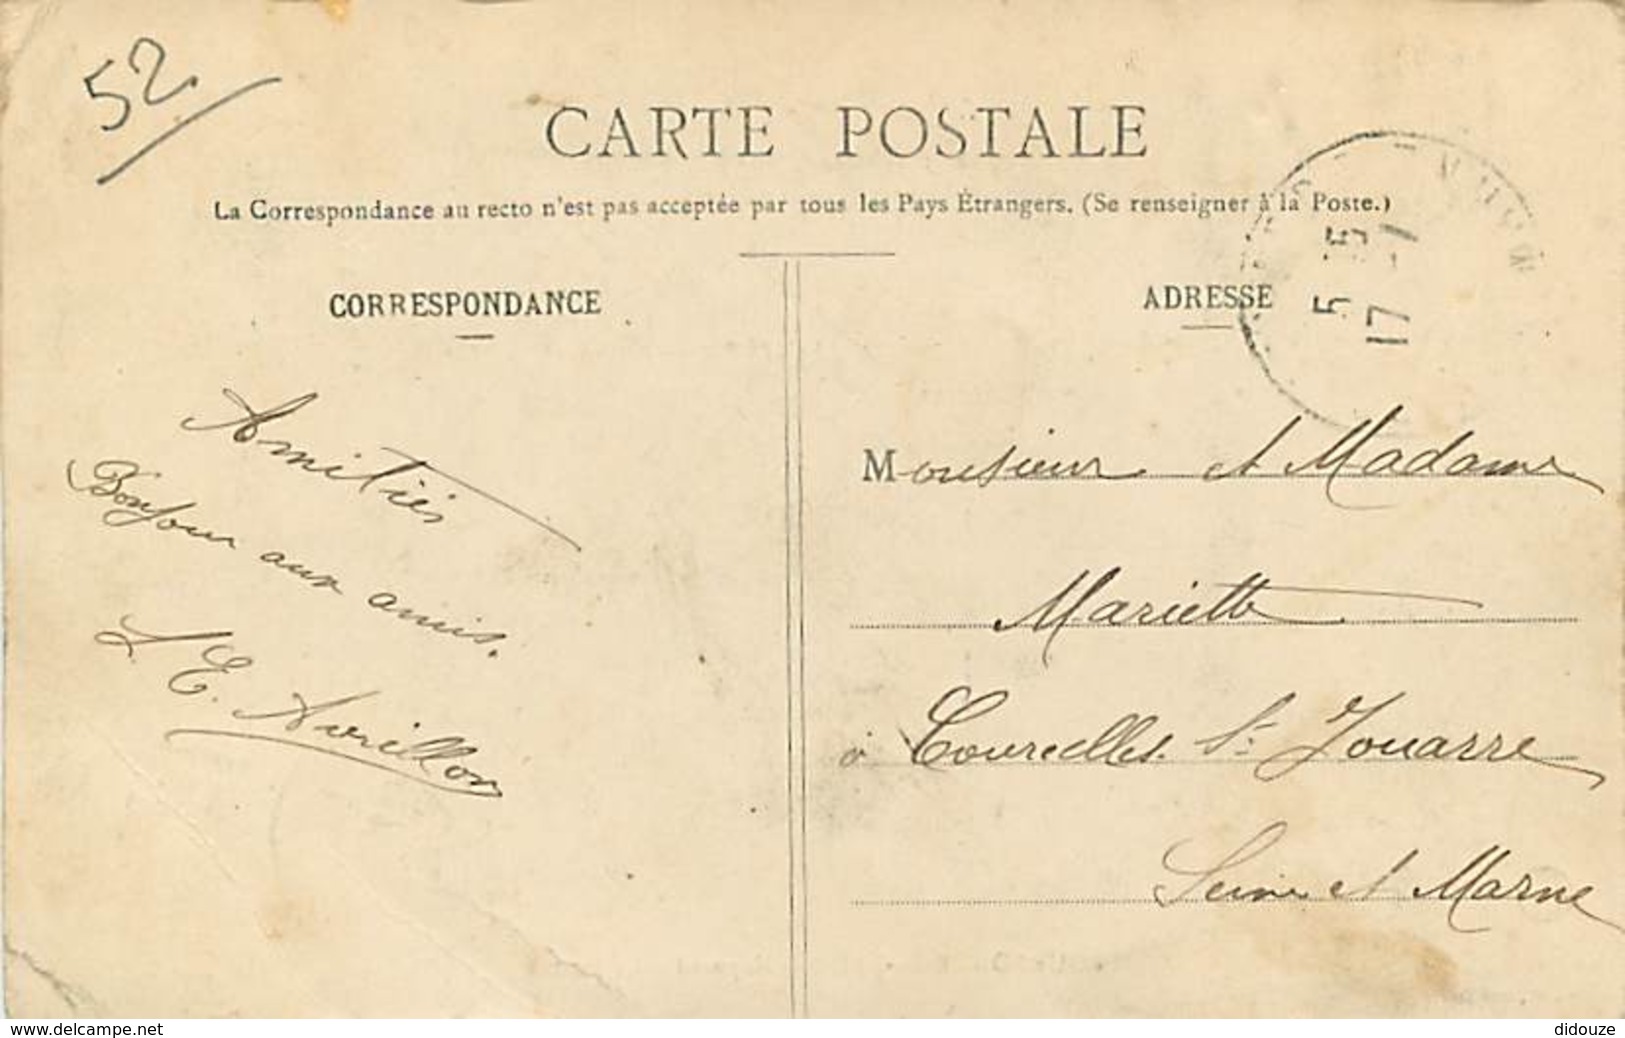 52
CARTE POSTALE
La Correspondance au recto n'est pas acceptée par tous les Pays Étrangers. (Se renseigner à la Poste.)
CORRESPONDANCE
Amitiés
Bonjour aux amis.
E. Avrillon
ADRESSE
5 5
17 -7
Monsieur et Madame
Mariette
à Courcelles St Jouarre
Seine et Marne
www.delcampe.net
didouze